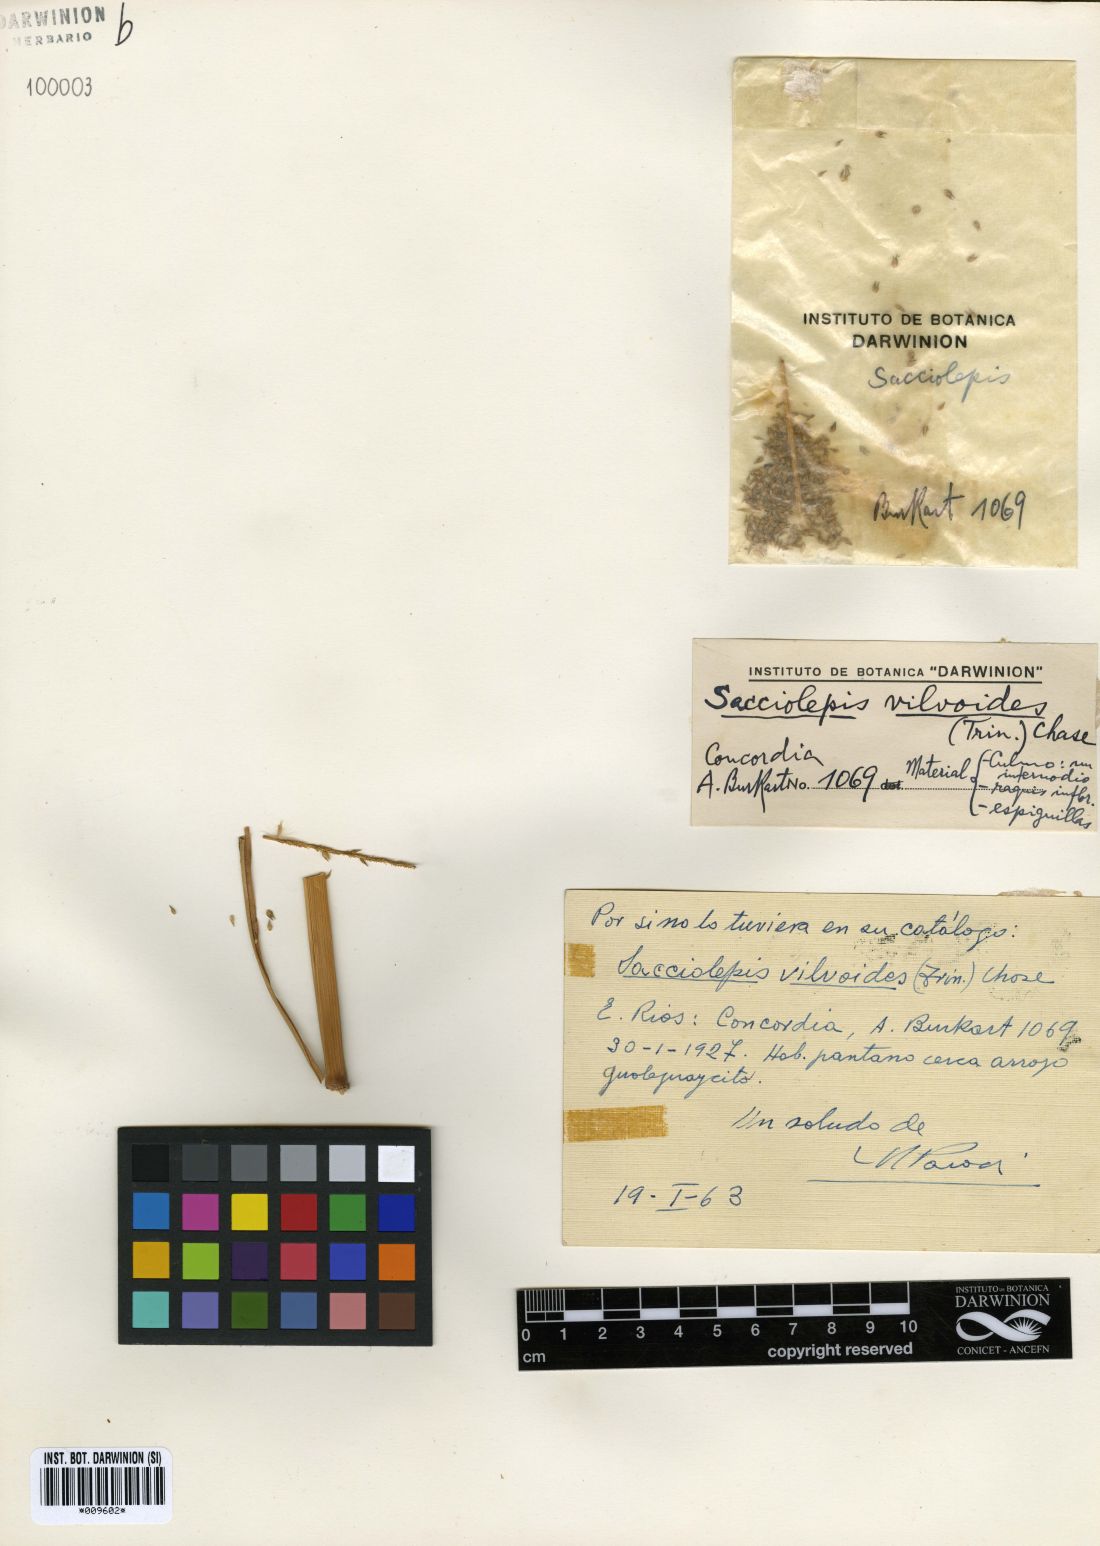 DARWINION b
HERBARIO
100003
INSTITUTO DE BOTANICA
DARWINION
Sacciolepis
Burkart 1069
INSTITUTO DE BOTANICA "DARWINION"
Sacciolepis vilvoides
(Trin.) Chase
Concordia
A. Burkart No. 1069 det. Material
- Culmo: un
internodio
- raquis inflor.
- espiguillas
Por si no lo tuviera en su catálogo:
Sacciolepis vilvoides (Trin.) Chase
E. Rios: Concordia, A. Burkart 1069
30-1-1927. Hab. pantano cerca arroyo
Gualeguaycito.
Un saludo de
LR Parodi
19-I-63
0 1 2 3 4 5 6 7 8 9 10
cm
copyright reserved
INSTITUTO DE BOTANICA
DARWINION
CONICET - ANCEFN
INST. BOT. DARWINION (SI)
*009602*